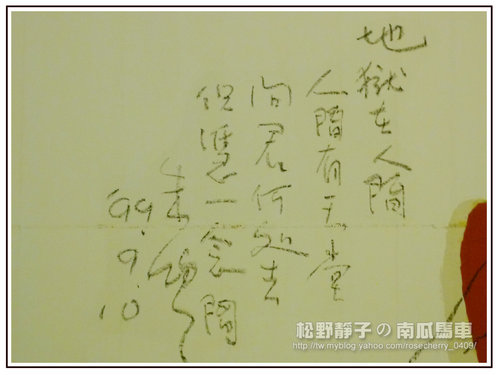 地獄在人間
人間有天堂
問君何処去
但憑一念間
99.9.10
松野靜子の南瓜馬車
http://tw.myblog.yahoo.com/rosecherry_0409/